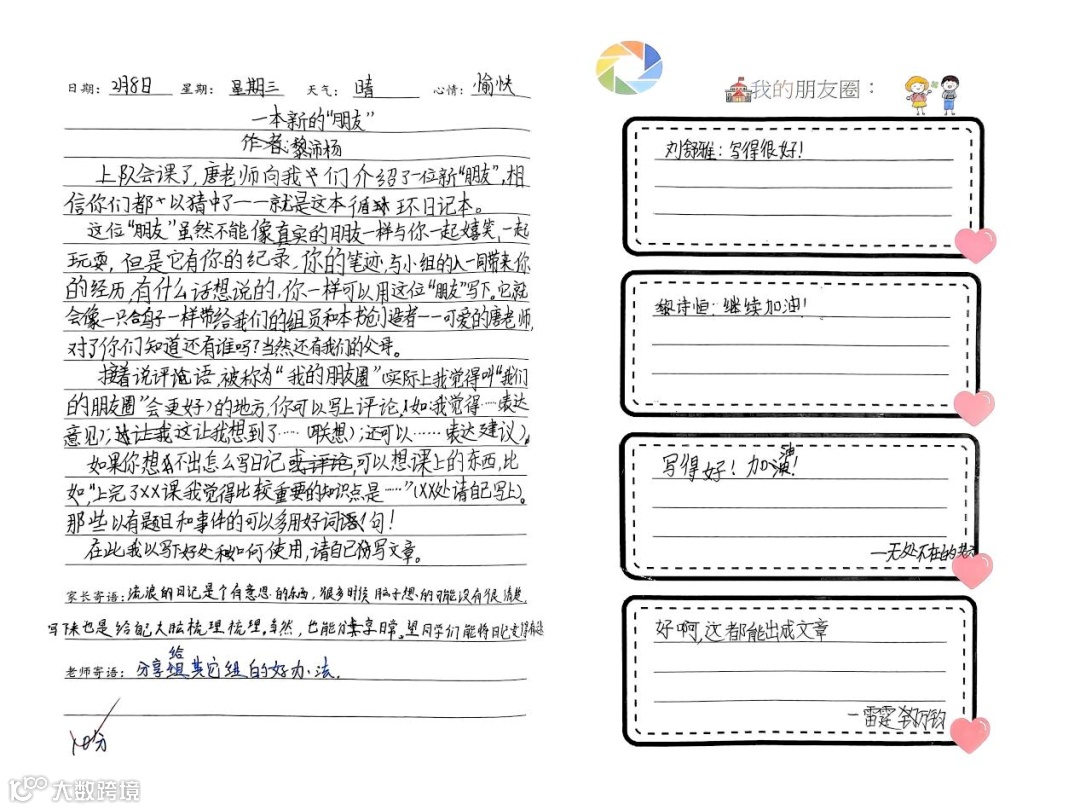 日期：2月8日 星期：星期三 天气：晴 心情：愉快
一本新的“朋友”
作者：黎沛杨
上队会课了，唐老师向我们介绍了一位新“朋友”，相
信你们都以猜中了——就是这本循环日记本。
这位“朋友”虽然不能像真实的朋友一样与你一起嬉笑，一起
玩耍，但是它有你的纪录，你的笔迹，与小组的人一同带来你
的经历，有什么话想说的，你一样可以用这位“朋友”写下。它就
会像一只鸽子一样带给我们的组员和本书创造者——可爱的唐老师，
对了你们知道还有谁吗？当然还有我们的父母。
接着说评论语，被称为“我的朋友圈”（实际上我觉得叫“我们
的朋友圈”会更好）的地方，你可以写上评论，（如：我觉得……表达
意见）；这让我想到了……（联想）；还可以……表达建议）。
如果你想不出怎么写日记或评论，可以想课上的东西，比
如，“上完了XX课我觉得比较重要的知识点是……”（XX处请自己写上）。
那些以有题目和事件的可以多用好词好句！
在此我以写下好处和如何使用，请自己仿写文章。
家长寄语：流浪的日记是个有意思的东西，很多时候脑子想的可能没有很清楚，
写下来也是给自己大脑梳理梳理。当然，也能分享日常。望同学们能将日记变得有趣
老师寄语：分享给其它组的好办法。
10分
我的朋友圈：
刘舒雅：写得很好！
黎诗恒：继续加油！
写得好！加油！
—无处不在的
好啊，这都能出成文章
—雷霆
大数跨境